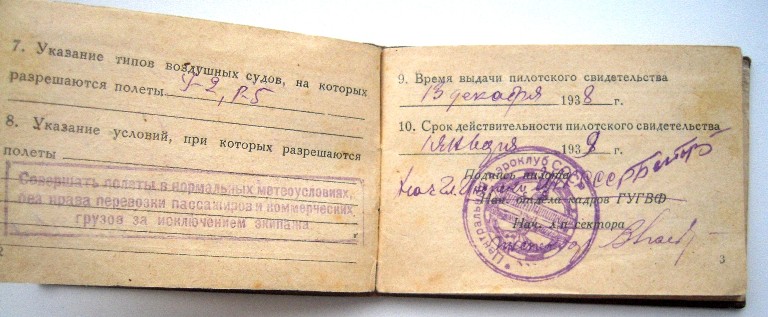 7. Указание типов воздушных судов, на которых
разрешаются полеты У-2, Р-5
8. Указание условий, при которых разрешаются
полеты
Совершать полеты в нормальных метеоусловиях,
без права перевозки пассажиров и коммерческих
грузов за исключением экипажа
2
9. Время выдачи пилотского свидетельства
13 декабря 1938 г.
10. Срок действительности пилотского свидетельства
1 января 1939 г.
Подпись пилота
Нач. отдела кадров ГУГВФ
Нач. л/п сектора
Центральный Аэроклуб СССР
3